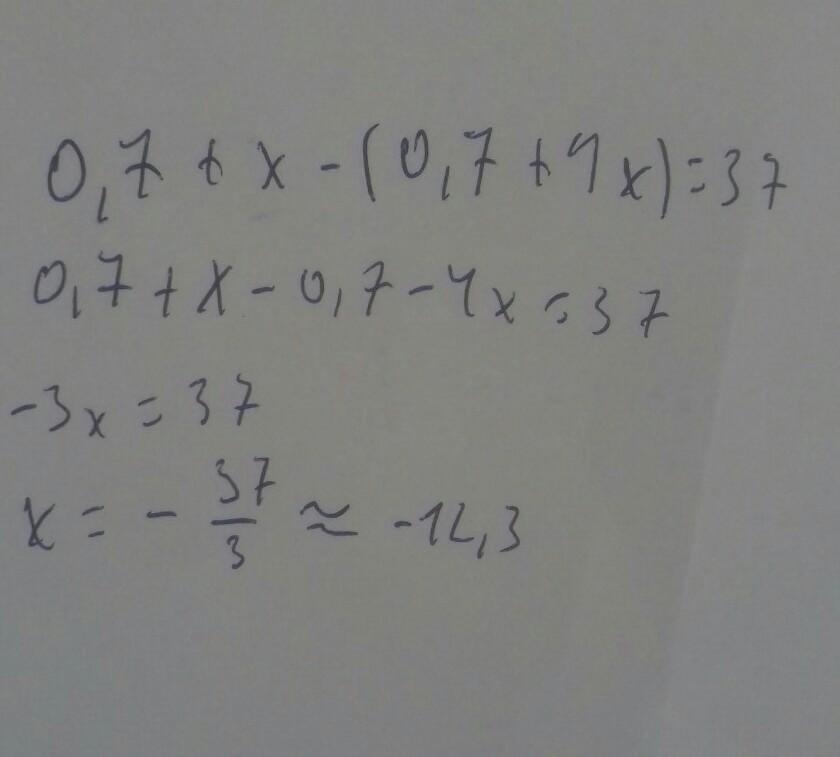 0,7 + x - (0,7 + 4x) = 37
0,7 + x - 0,7 - 4x = 37
-3x = 37
x = - 37/3 ≈ -12,3